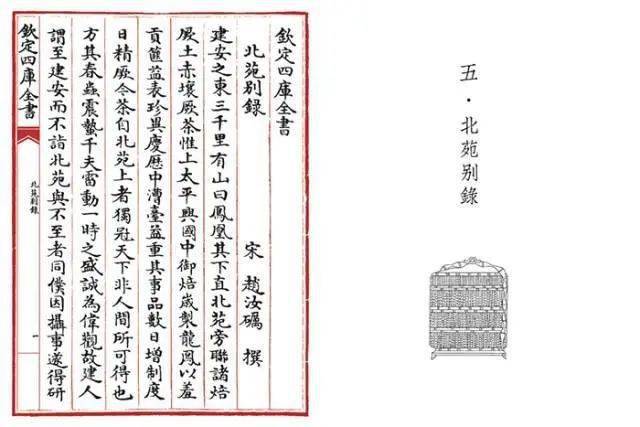 五·北苑别錄
欽定四庫全書
北苑别錄 宋 趙汝礪 撰
建安之東三千里有山曰鳳凰其下直北苑旁聯諸焙
厥土赤壤厥茶惟上太平興國中御焙歲製龍鳳以羞
貢篚益表珍異慶歴中漕臺益重其事品數日增制度
日精厥今茶自北苑上者獨冠天下非人間所可得也
方其春蟲震蟄千夫雷動一時之盛誠為偉觀故建人
謂至建安而不詣北苑與不至者同僕因攝事遂得研
欽定四庫全書
北苑别錄
一